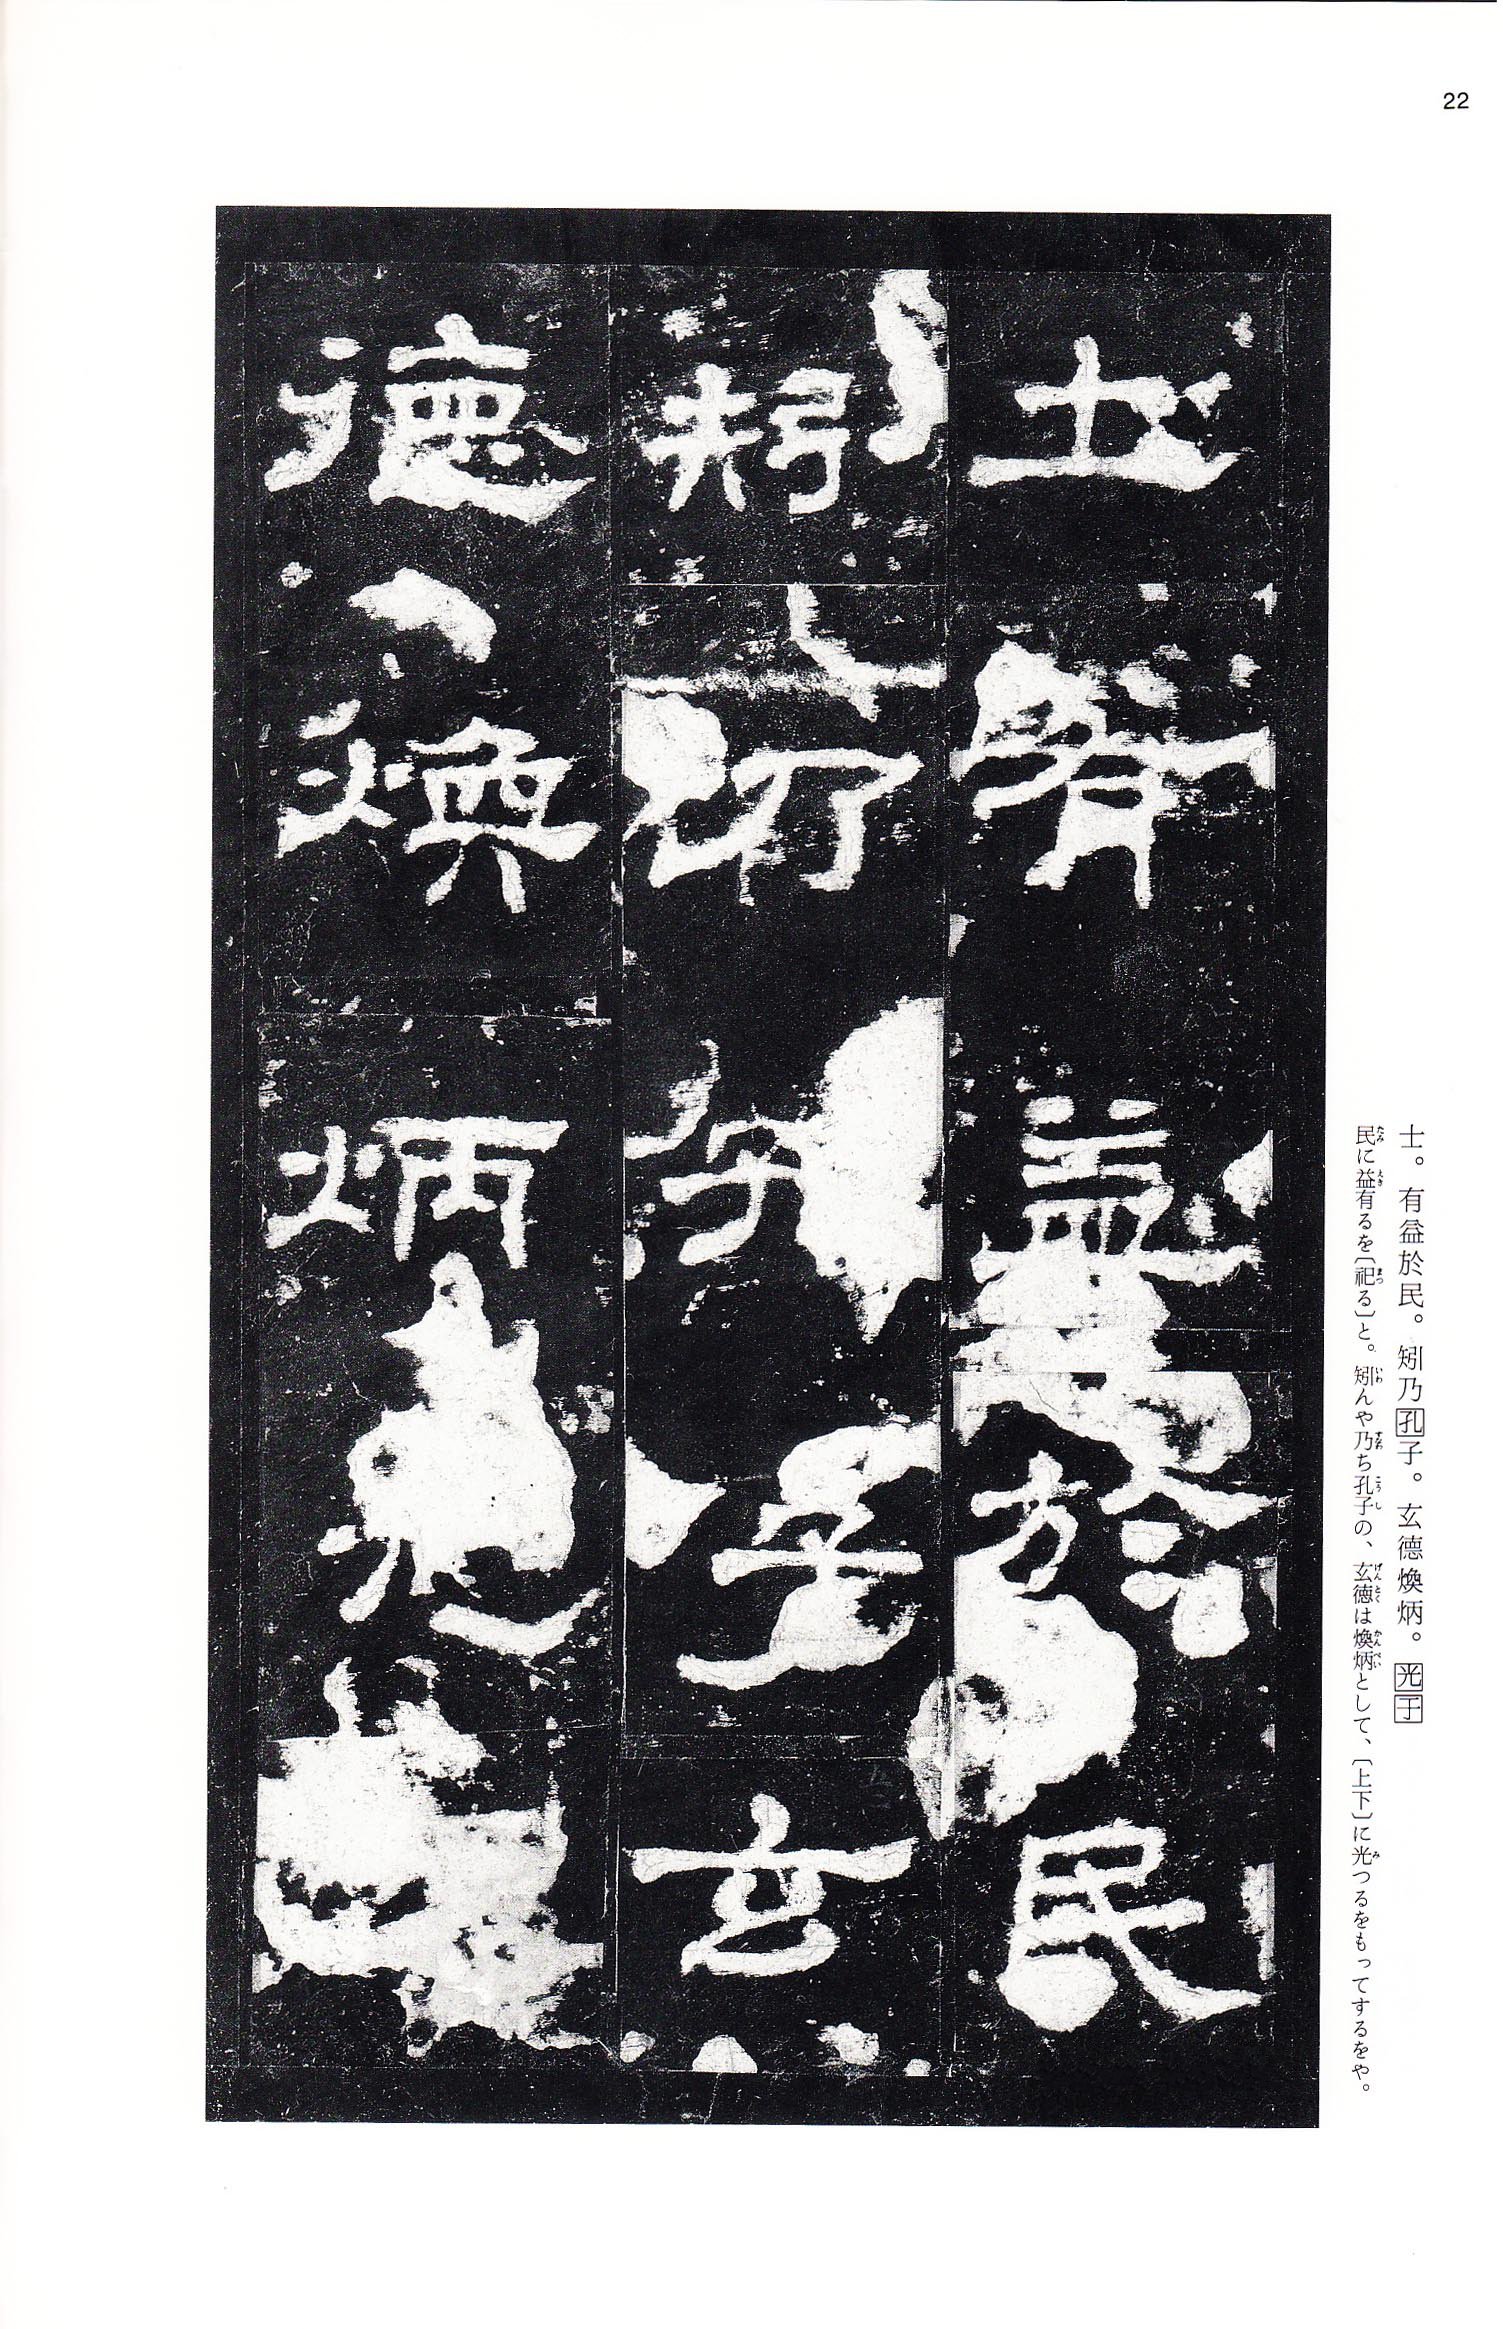 22
士有益於民
矧乃孔子玄
德煥炳光于
士。有益於民。矧乃孔子。玄德煥炳。光于
民に益有るを〔祀る〕と。矧んや乃ち孔子の、玄徳は煥炳として、〔上下〕に光つるをもってするをや。